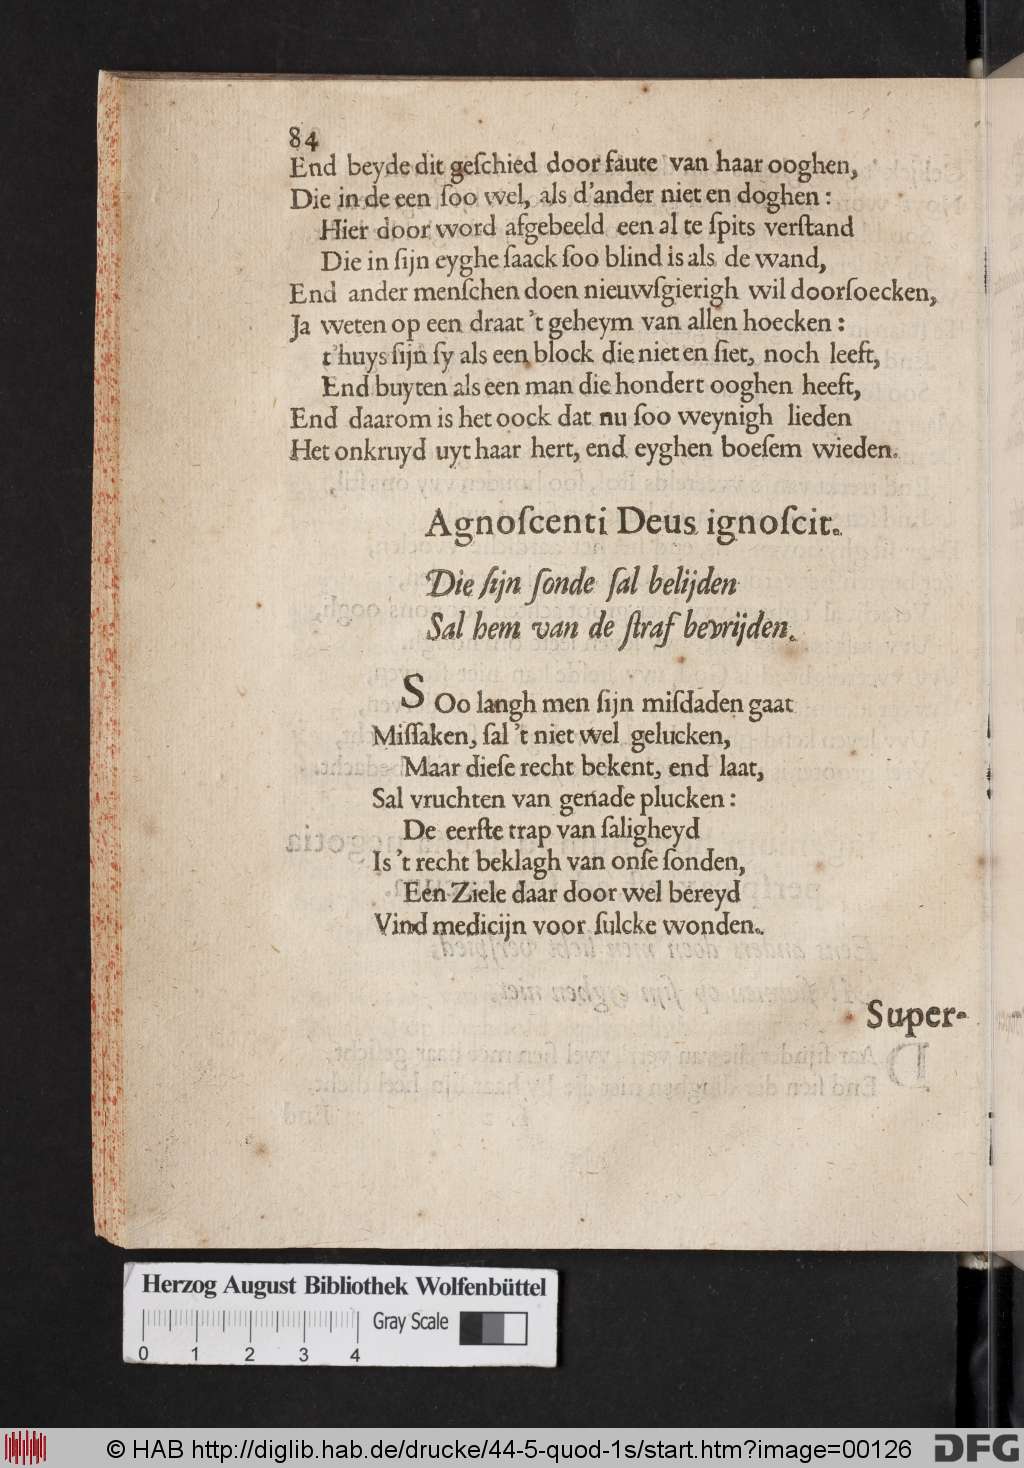 84
End beyde dit geſchied door faute van haar ooghen,
Die in de een ſoo wel, als d'ander niet en doghen:
Hier door word afgebeeld een al te ſpits verſtand
Die in ſijn eyghe ſaack ſoo blind is als de wand,
End ander menſchen doen nieuwſgierigh wil doorſoecken,
Ja weten op een draat 't geheym van allen hoecken:
t'huys ſijn ſy als een block die niet en ſiet, noch leeft,
End buyten als een man die hondert ooghen heeft,
End daarom is het oock dat nu ſoo weynigh lieden
Het onkruyd uyt haar hert, end eyghen boeſem wieden.
Agnoſcenti Deus ignoſcit.
Die ſijn ſonde ſal belijden
Sal hem van de ſtraf bevrijden.
SOo langh men ſijn miſdaden gaat
Miſſaken, ſal 't niet wel gelucken,
Maar dieſe recht bekent, end laat,
Sal vruchten van genade plucken:
De eerſte trap van ſaligheyd
Is 't recht beklagh van onſe ſonden,
Een Ziele daar door wel bereyd
Vind medicijn voor ſulcke wonden.
Super-
Herzog August Bibliothek Wolfenbüttel
Gray Scale
0 1 2 3 4
© HAB http://diglib.hab.de/drucke/44-5-quod-1s/start.htm?image=00126
DFG